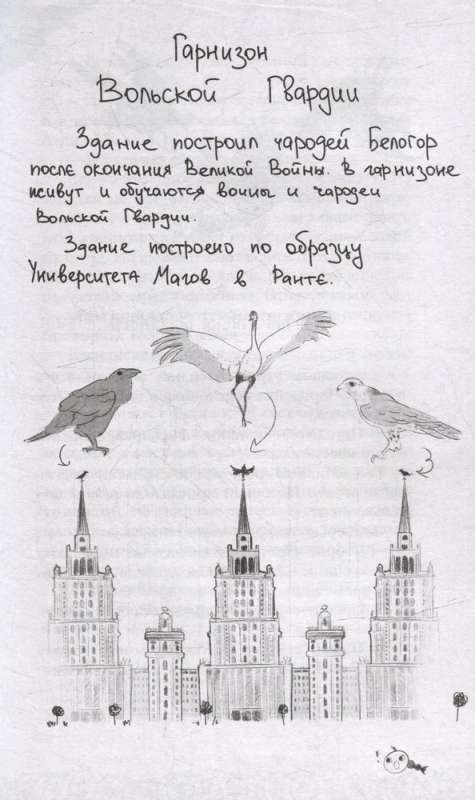 Гарнизон
Вольской Гвардии
Здание построил чародей Белогор
после окончания Великой Войны. В гарнизоне
живут и обучаются воины и чародеи
Вольской Гвардии.
Здание построено по образцу
Университета Магов в Ранте.
!